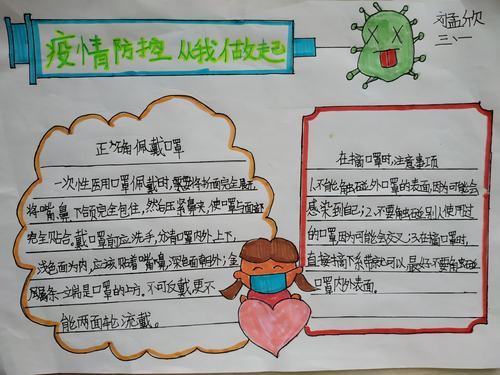 疫情防控 从我做起
孟欣
三、一
正确佩戴口罩
一次性医用口罩佩戴时,需要将折面完全展开,
将嘴、鼻、下颌完全包住,然后压紧鼻夹,使口罩与面部
完全贴合。戴口罩前应洗手,分清口罩内外、上下,
浅色面为内,应该贴着嘴鼻,深色面朝外;金
属条一端是口罩的上方。不可反戴,更不
能两面轮流戴。
在摘口罩时,注意事项
1.不能触碰外口罩的表面,因为可能会
感染到自己;2.不要触碰别人使用过
的口罩因为可能会交叉;3.在摘口罩时,
直接摘下系带就可以,最好不要触碰
口罩内外表面。